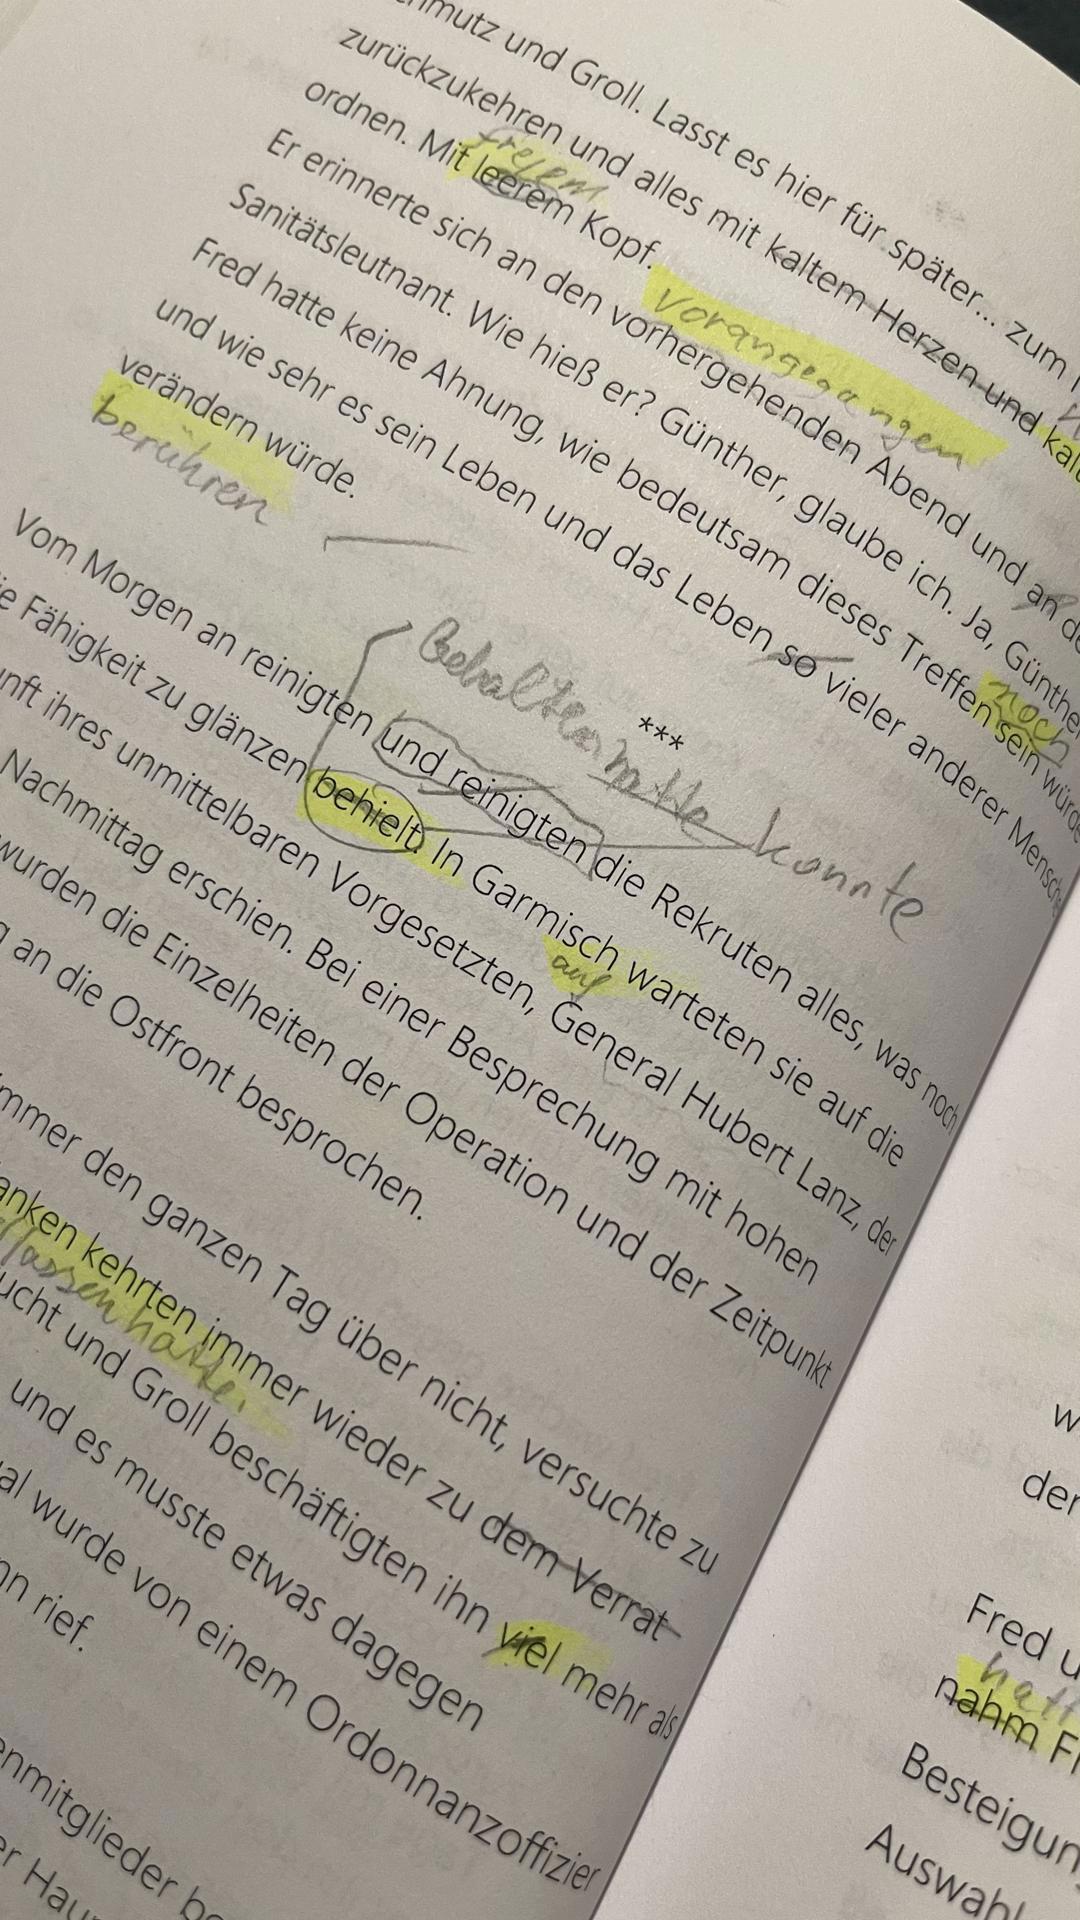 und Groll. Lasst es hier für später... zum
zurückzukehren und alles mit kaltem Herzen und
freiem
ordnen. Mit leerem Kopf.
vorangegangen
Er erinnerte sich an den vorhergehenden Abend und an
Sanitätsleutnant. Wie hieß er? Günther, glaube ich. Ja, Günther
noch
Fred hatte keine Ahnung, wie bedeutsam dieses Treffen sein würde
und wie sehr es sein Leben und das Leben so vieler anderer
verändern würde.
berühren
***
Behalten hatte konnte
Vom Morgen an reinigten und reinigten die Rekruten alles, was noch
Fähigkeit zu glänzen behielt. In Garmisch warteten sie auf die
auf
ihres unmittelbaren Vorgesetzten, General Hubert Lanz, der
Nachmittag erschien. Bei einer Besprechung mit hohen
wurden die Einzelheiten der Operation und der Zeitpunkt
an die Ostfront besprochen.
den ganzen Tag über nicht, versuchte zu
kehrten immer wieder zu dem Verrat
hatte.
und Groll beschäftigten ihn viel mehr als
und es musste etwas dagegen
wurde von einem Ordonnanzoffizier
rief.
Fred
nahm